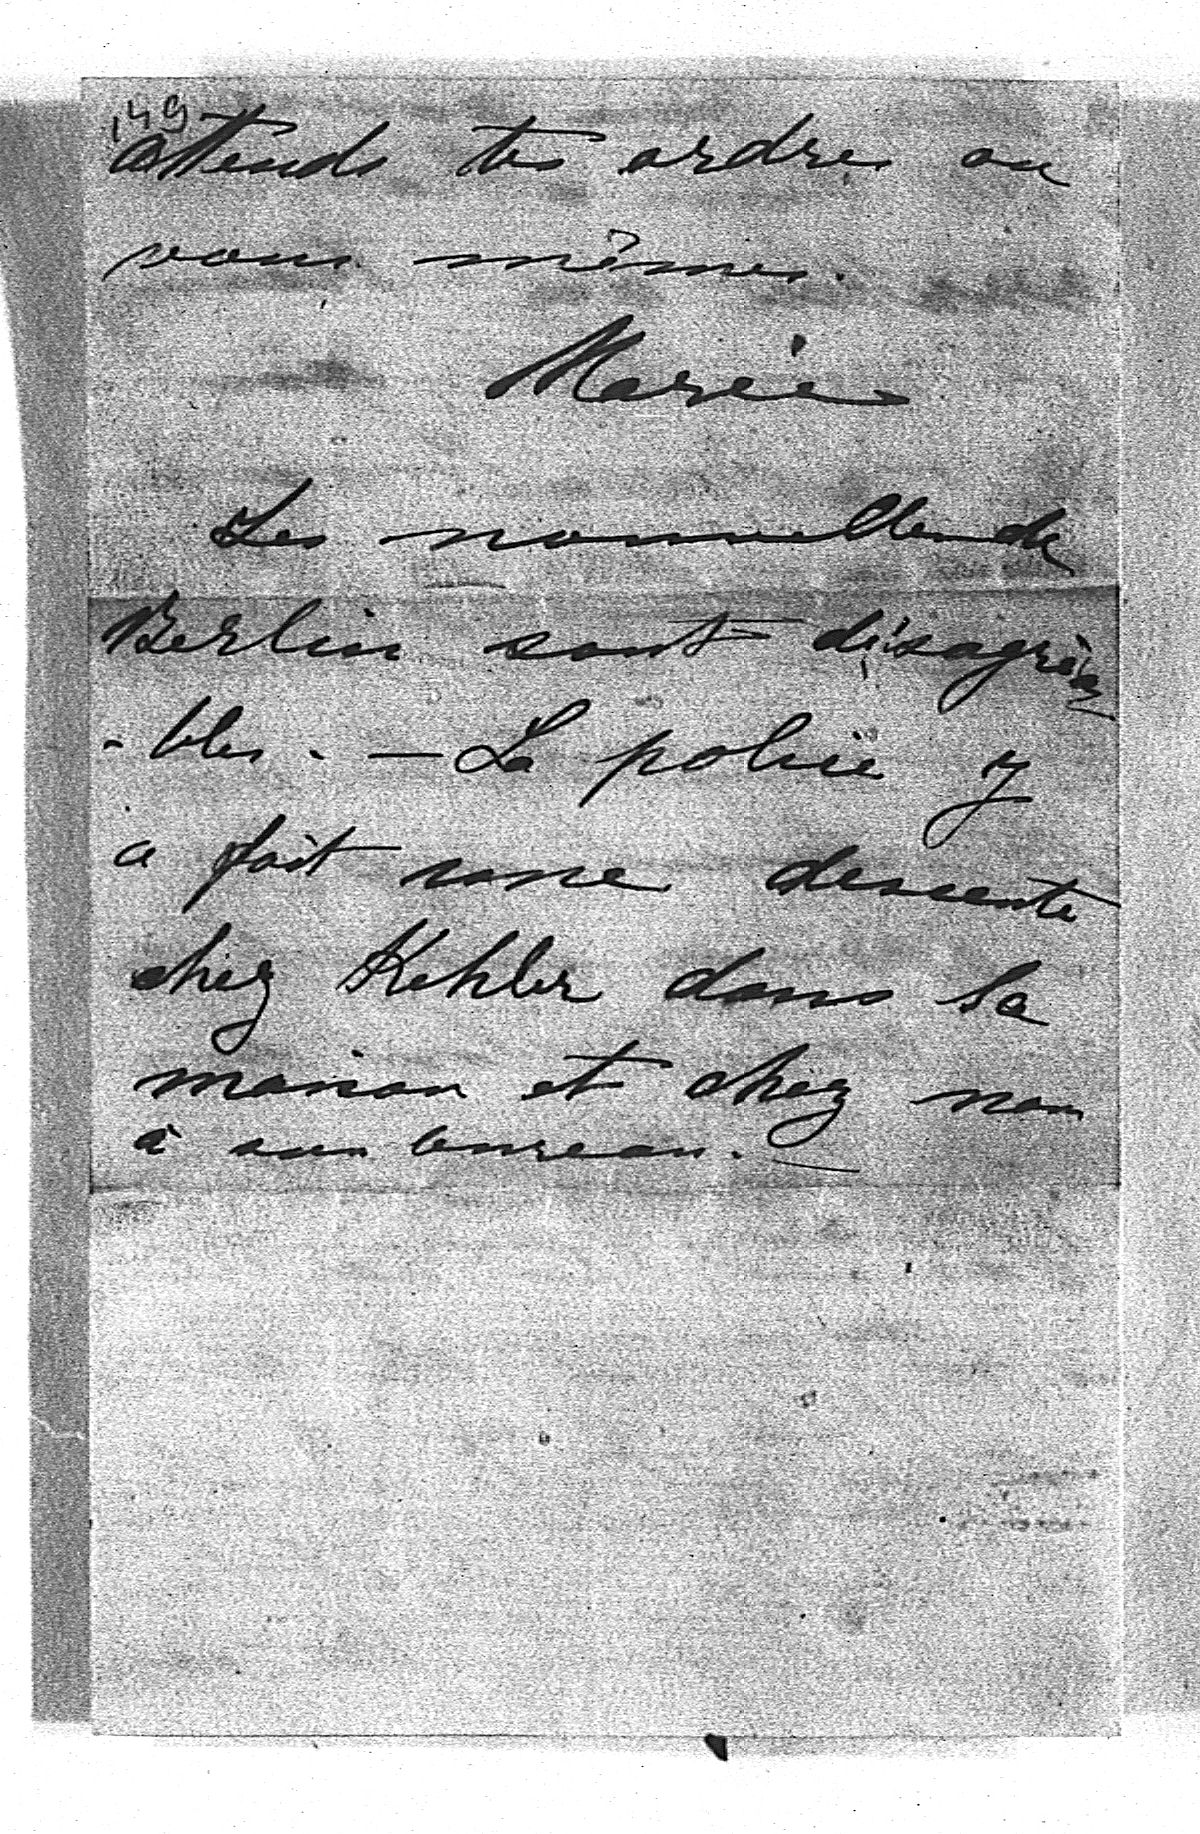 149
attends tes ordres ou
vous mêmes.
Marie
Les nouvelles de
Berlin sont désagréa
- bles. — La police y
a fait une descente
chez Kehler dans la
maison et chez nous
à son bureau. —